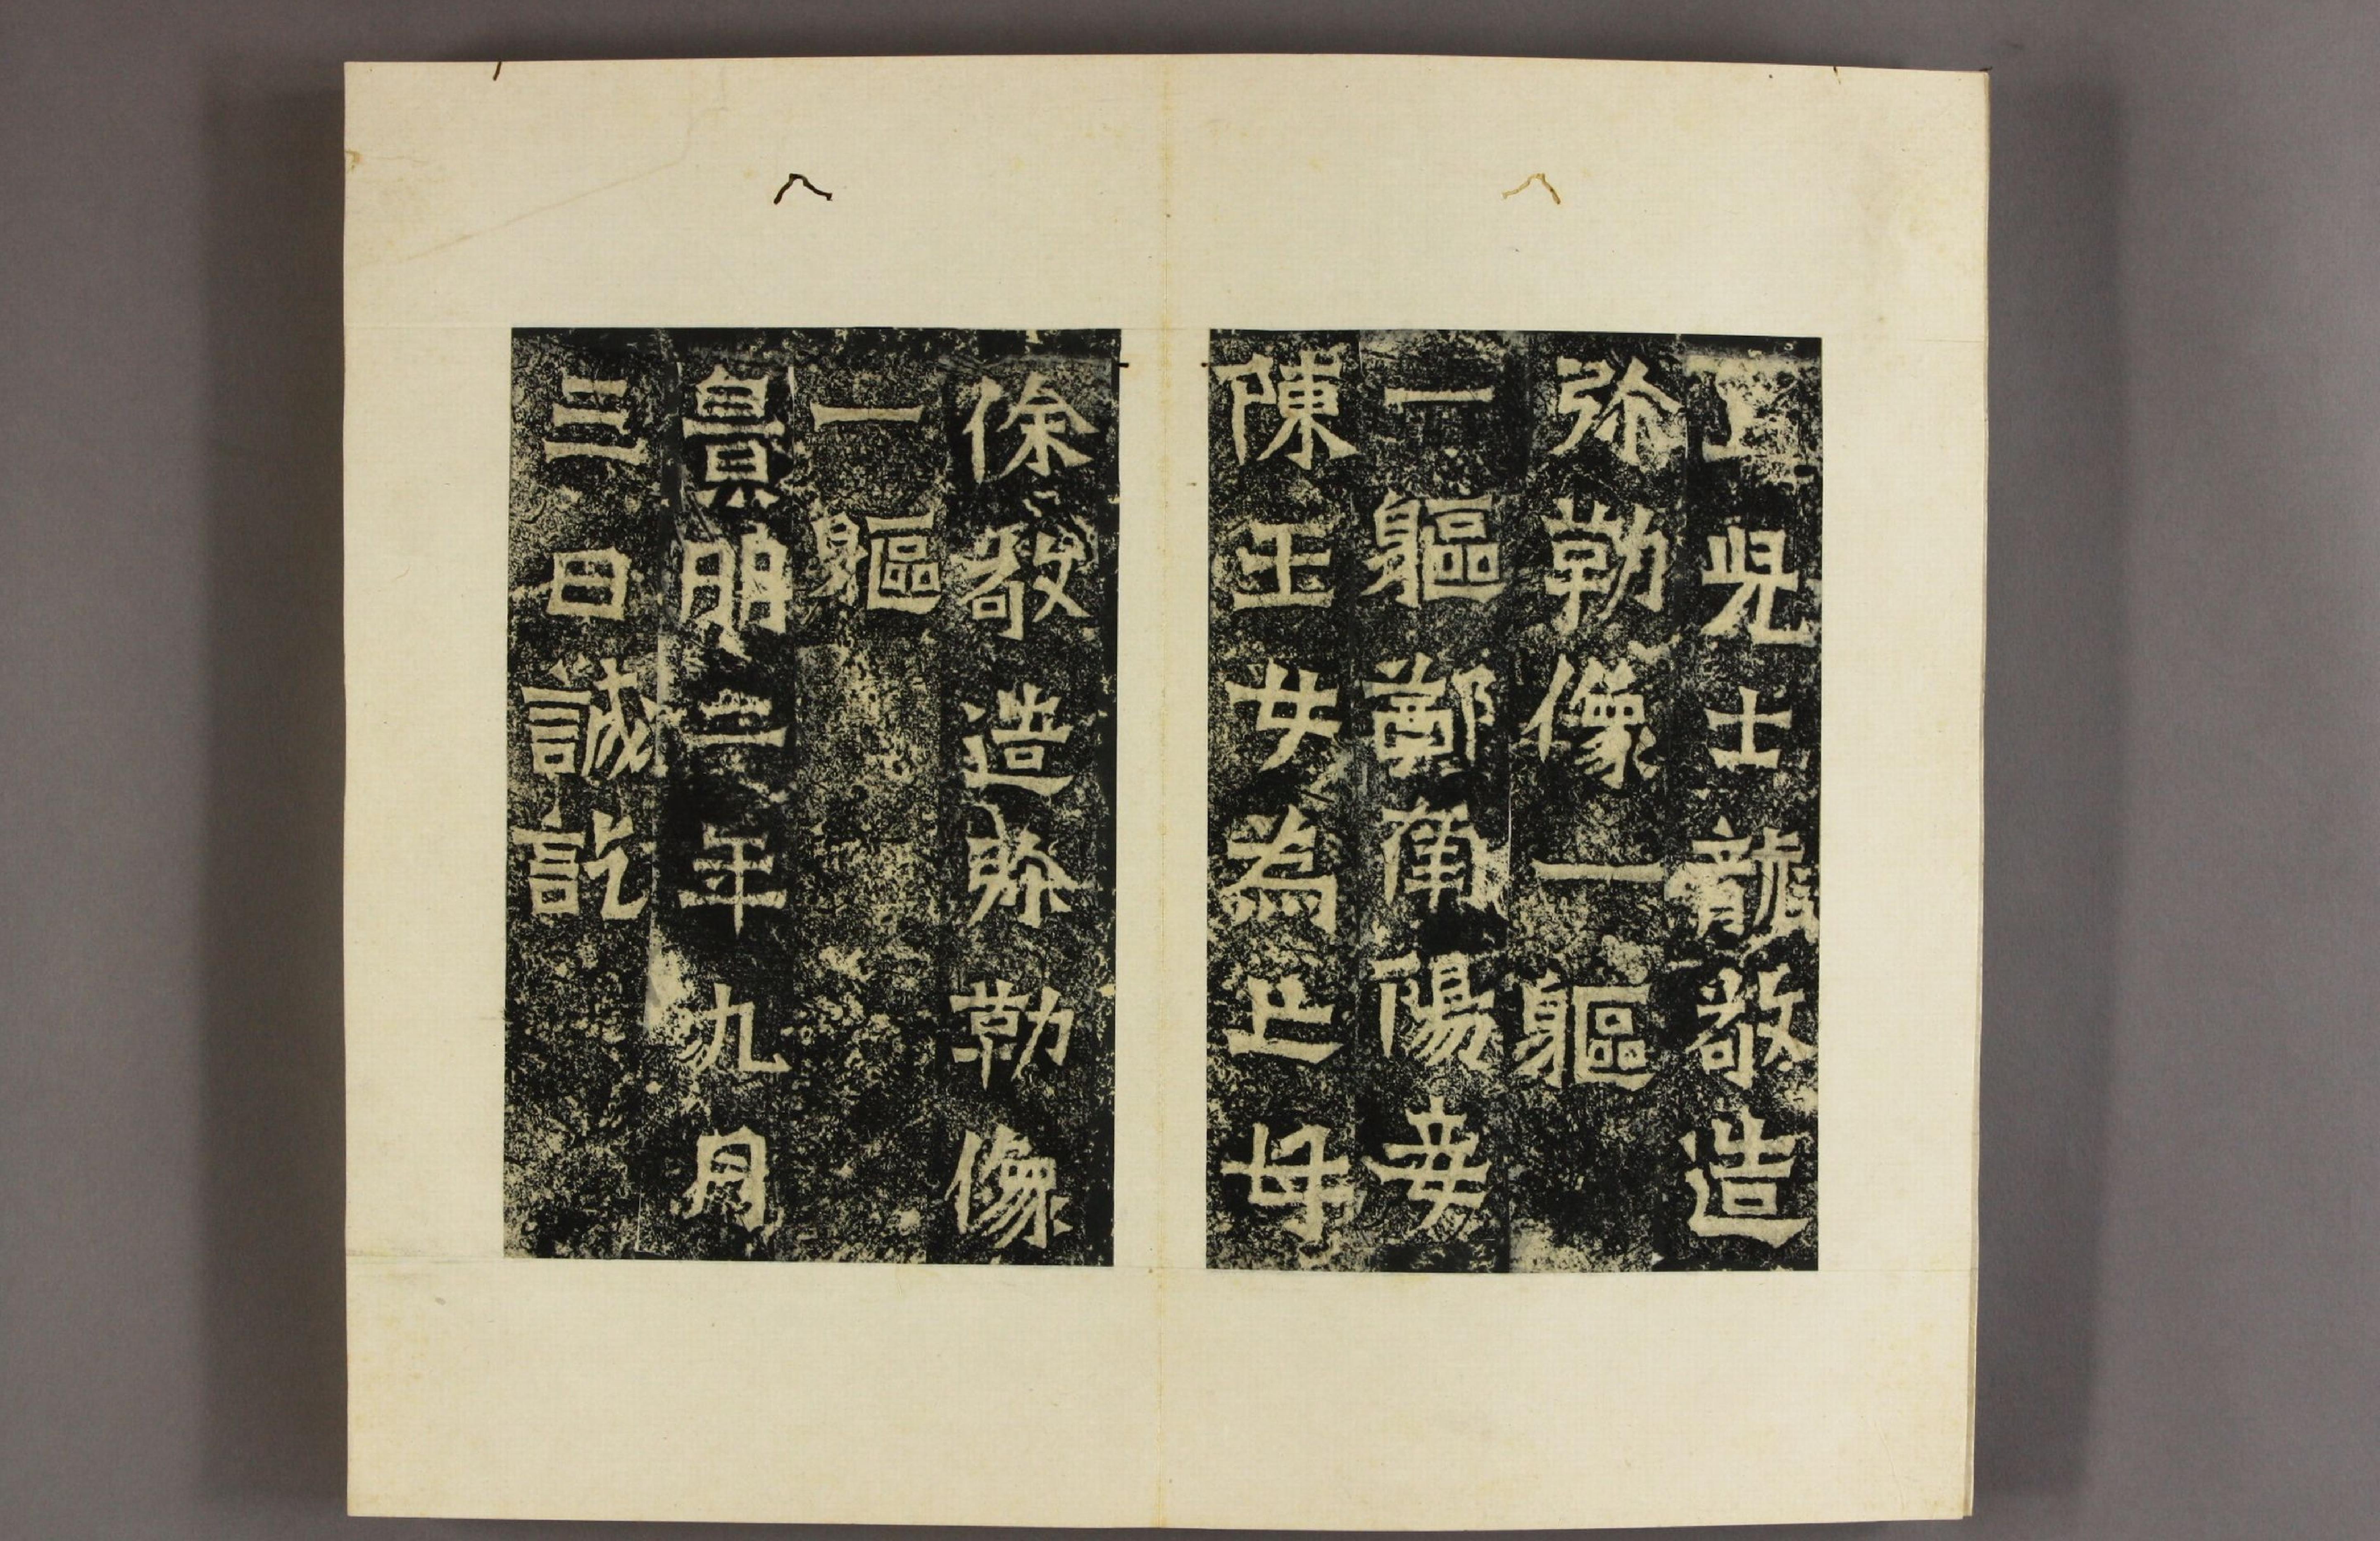 亡兒士龍敬造
弥勒像一軀
一軀鄭南陽妾
陳玉女為亡母
徐敬造弥勒像
一軀
景明二年九月
三日誡訖